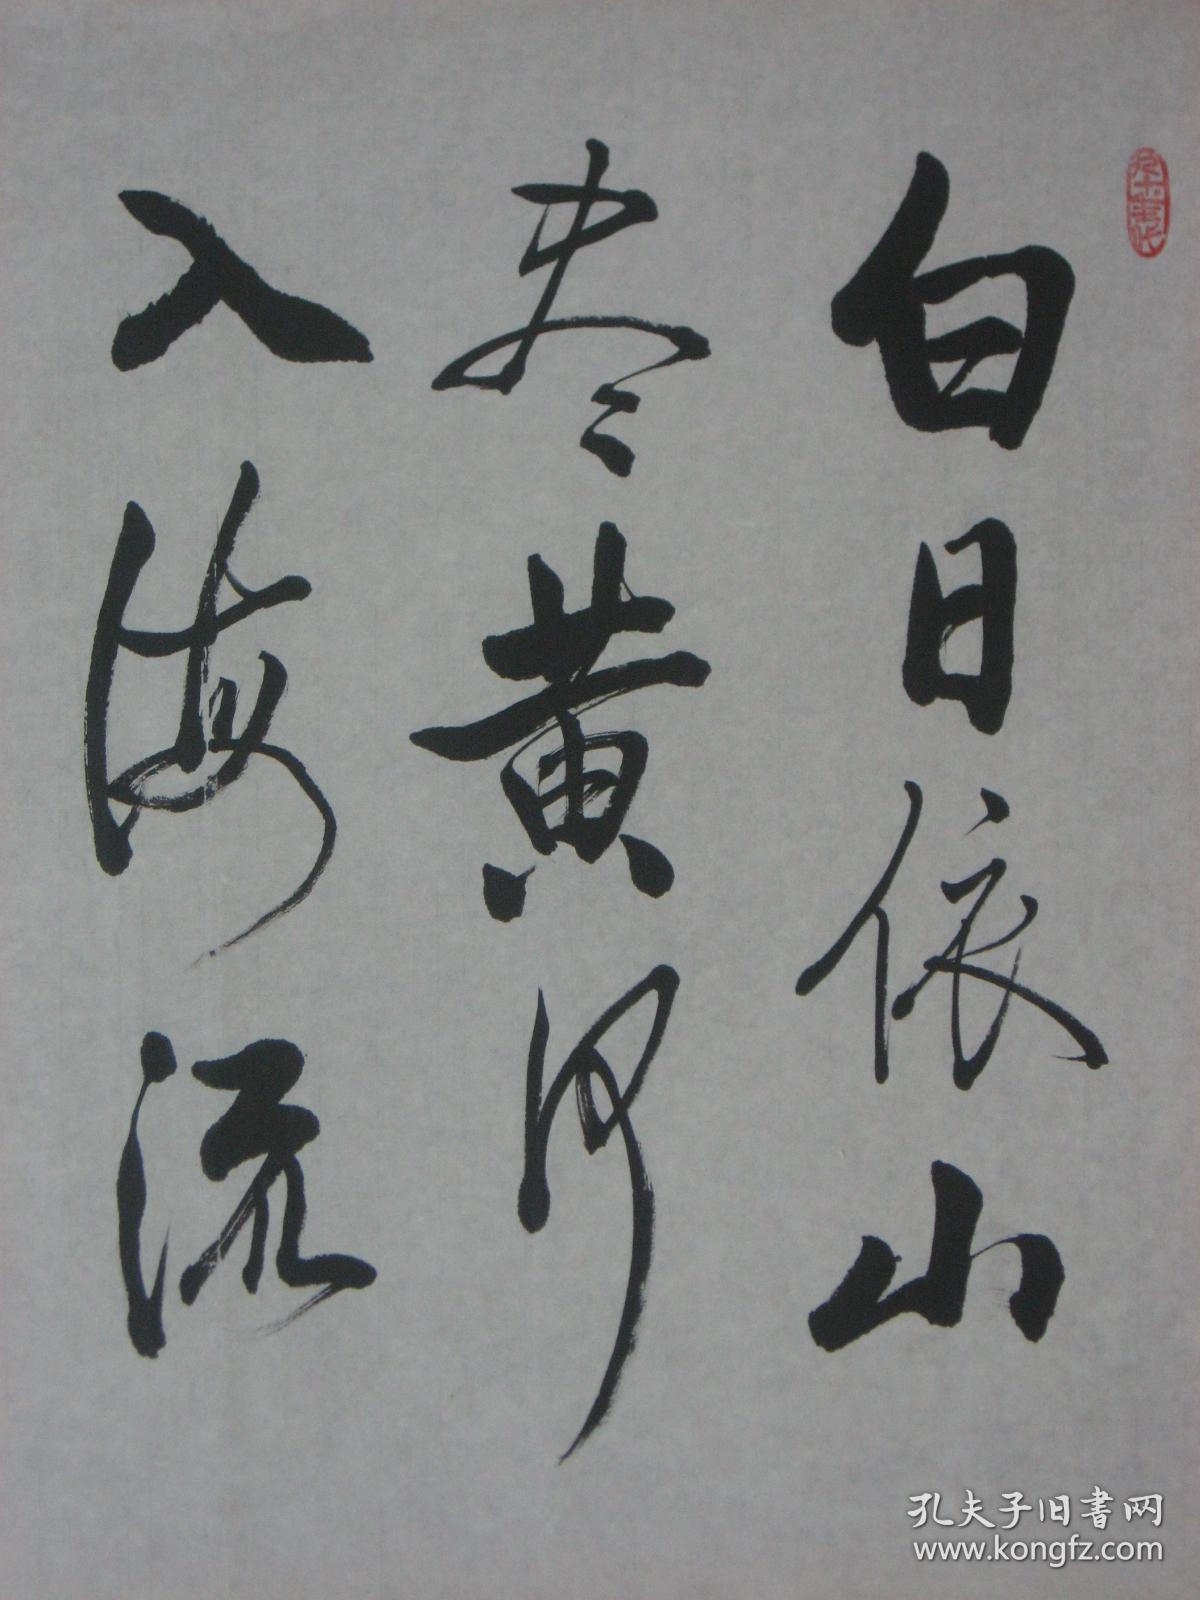 白日依山
尽黄河
入海流
孔夫子旧书网
www.kongfz.com